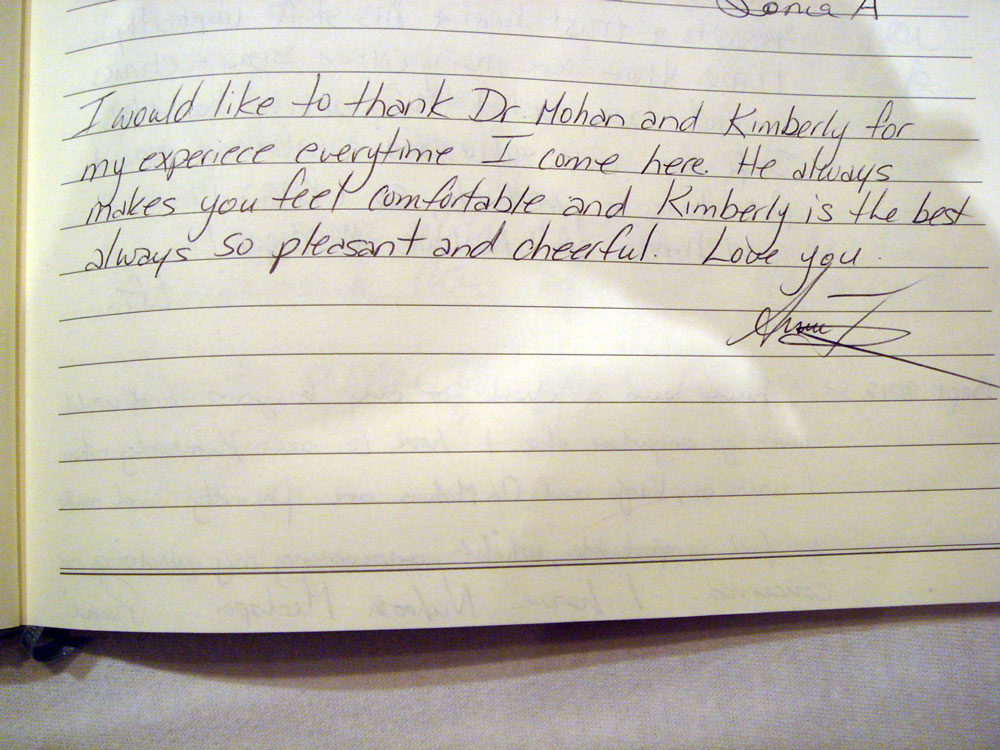 Sonia A
I would like to thank Dr. Mohan and Kimberly for
my experiece everytime I come here. He always
makes you feel comfortable and Kimberly is the best
always so pleasant and cheerful. Love you.